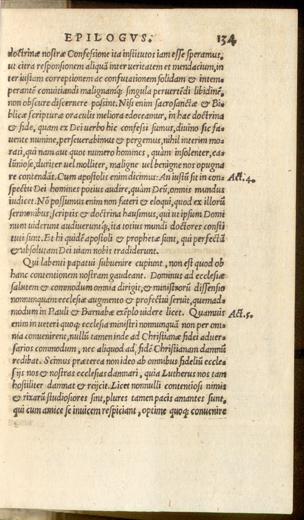 EPILOGVS. 134
doctrinæ nostræ Confessione ita institutos iam esse speramus,
ut citra responsionem aliquā inter veritatem et mendacium, in
ter iustam correptionem ac confutationem solidam & intem
perantē conviciandi malignamq́; singula pervertēdi libidinē,
non obscure discernere possint. Nisi enim sacrosanctæ & Bi-
blicæ scripturæ oraculis meliora edoceamur, in hac doctrina
& fide, quam ex Dei verbo hic confessi sumus, divino sic fa-
vente numine, perseverabimus & pergemus, nihil interim mo
rati, qui nam aut quot numero homines, quàm insolenter, ca-
lūniose, duriter vel molliter, maligne vel benigne nos oppugna
re contendāt. Cum apostolis enim dicimus: An iustū sit in con- Act. 4.
spectu Dei homines potius audire, quàm Deū, omnis mundus
iudicet. Nō possumus enim non fateri & eloqui, quod ex illorū
sermonibus, scriptis & doctrina hausimus, qui ut ipsum Domi
num viderunt audiveruntq́;, ita totius mundi doctores consti
tuti sunt. Et hi quidē apostoli & prophetæ sunt, qui perfectā
& absolutam Dei viam nobis tradiderunt.
Qui labenti papatui subvenire cupiunt, non est quod ob
hanc contentionem nostram gaudeant. Dominus ad ecclesiæ
salutem & commodum omnia dirigit, & ministrorū dissensio
nonnunquam ecclesiæ augmento & profectui servit, quemad-
modum in Pauli & Barnabæ exēplo videre licet. Quamvis Act. 5.
enim in veteri quoq; ecclesia ministri nonnunquā non per om-
nia convenirent, nulli tamen inde ad Christianæ fidei adver-
sarios commodum, nec aliquod ad fidē Christianam damnū
redibat. Scimus præterea non ideo ab omnibus fidelibus
eccle-
sijs nos & nostras ecclesias damnari, quia Lutherus nos tam
hostiliter damnat & reijcit. Licet nonnulli contentiosi nimis
& rixarū studiosiores sint, plures tamen pacis amantes sunt,
qui cum amice se invicem respiciant, optime quoq; convenire